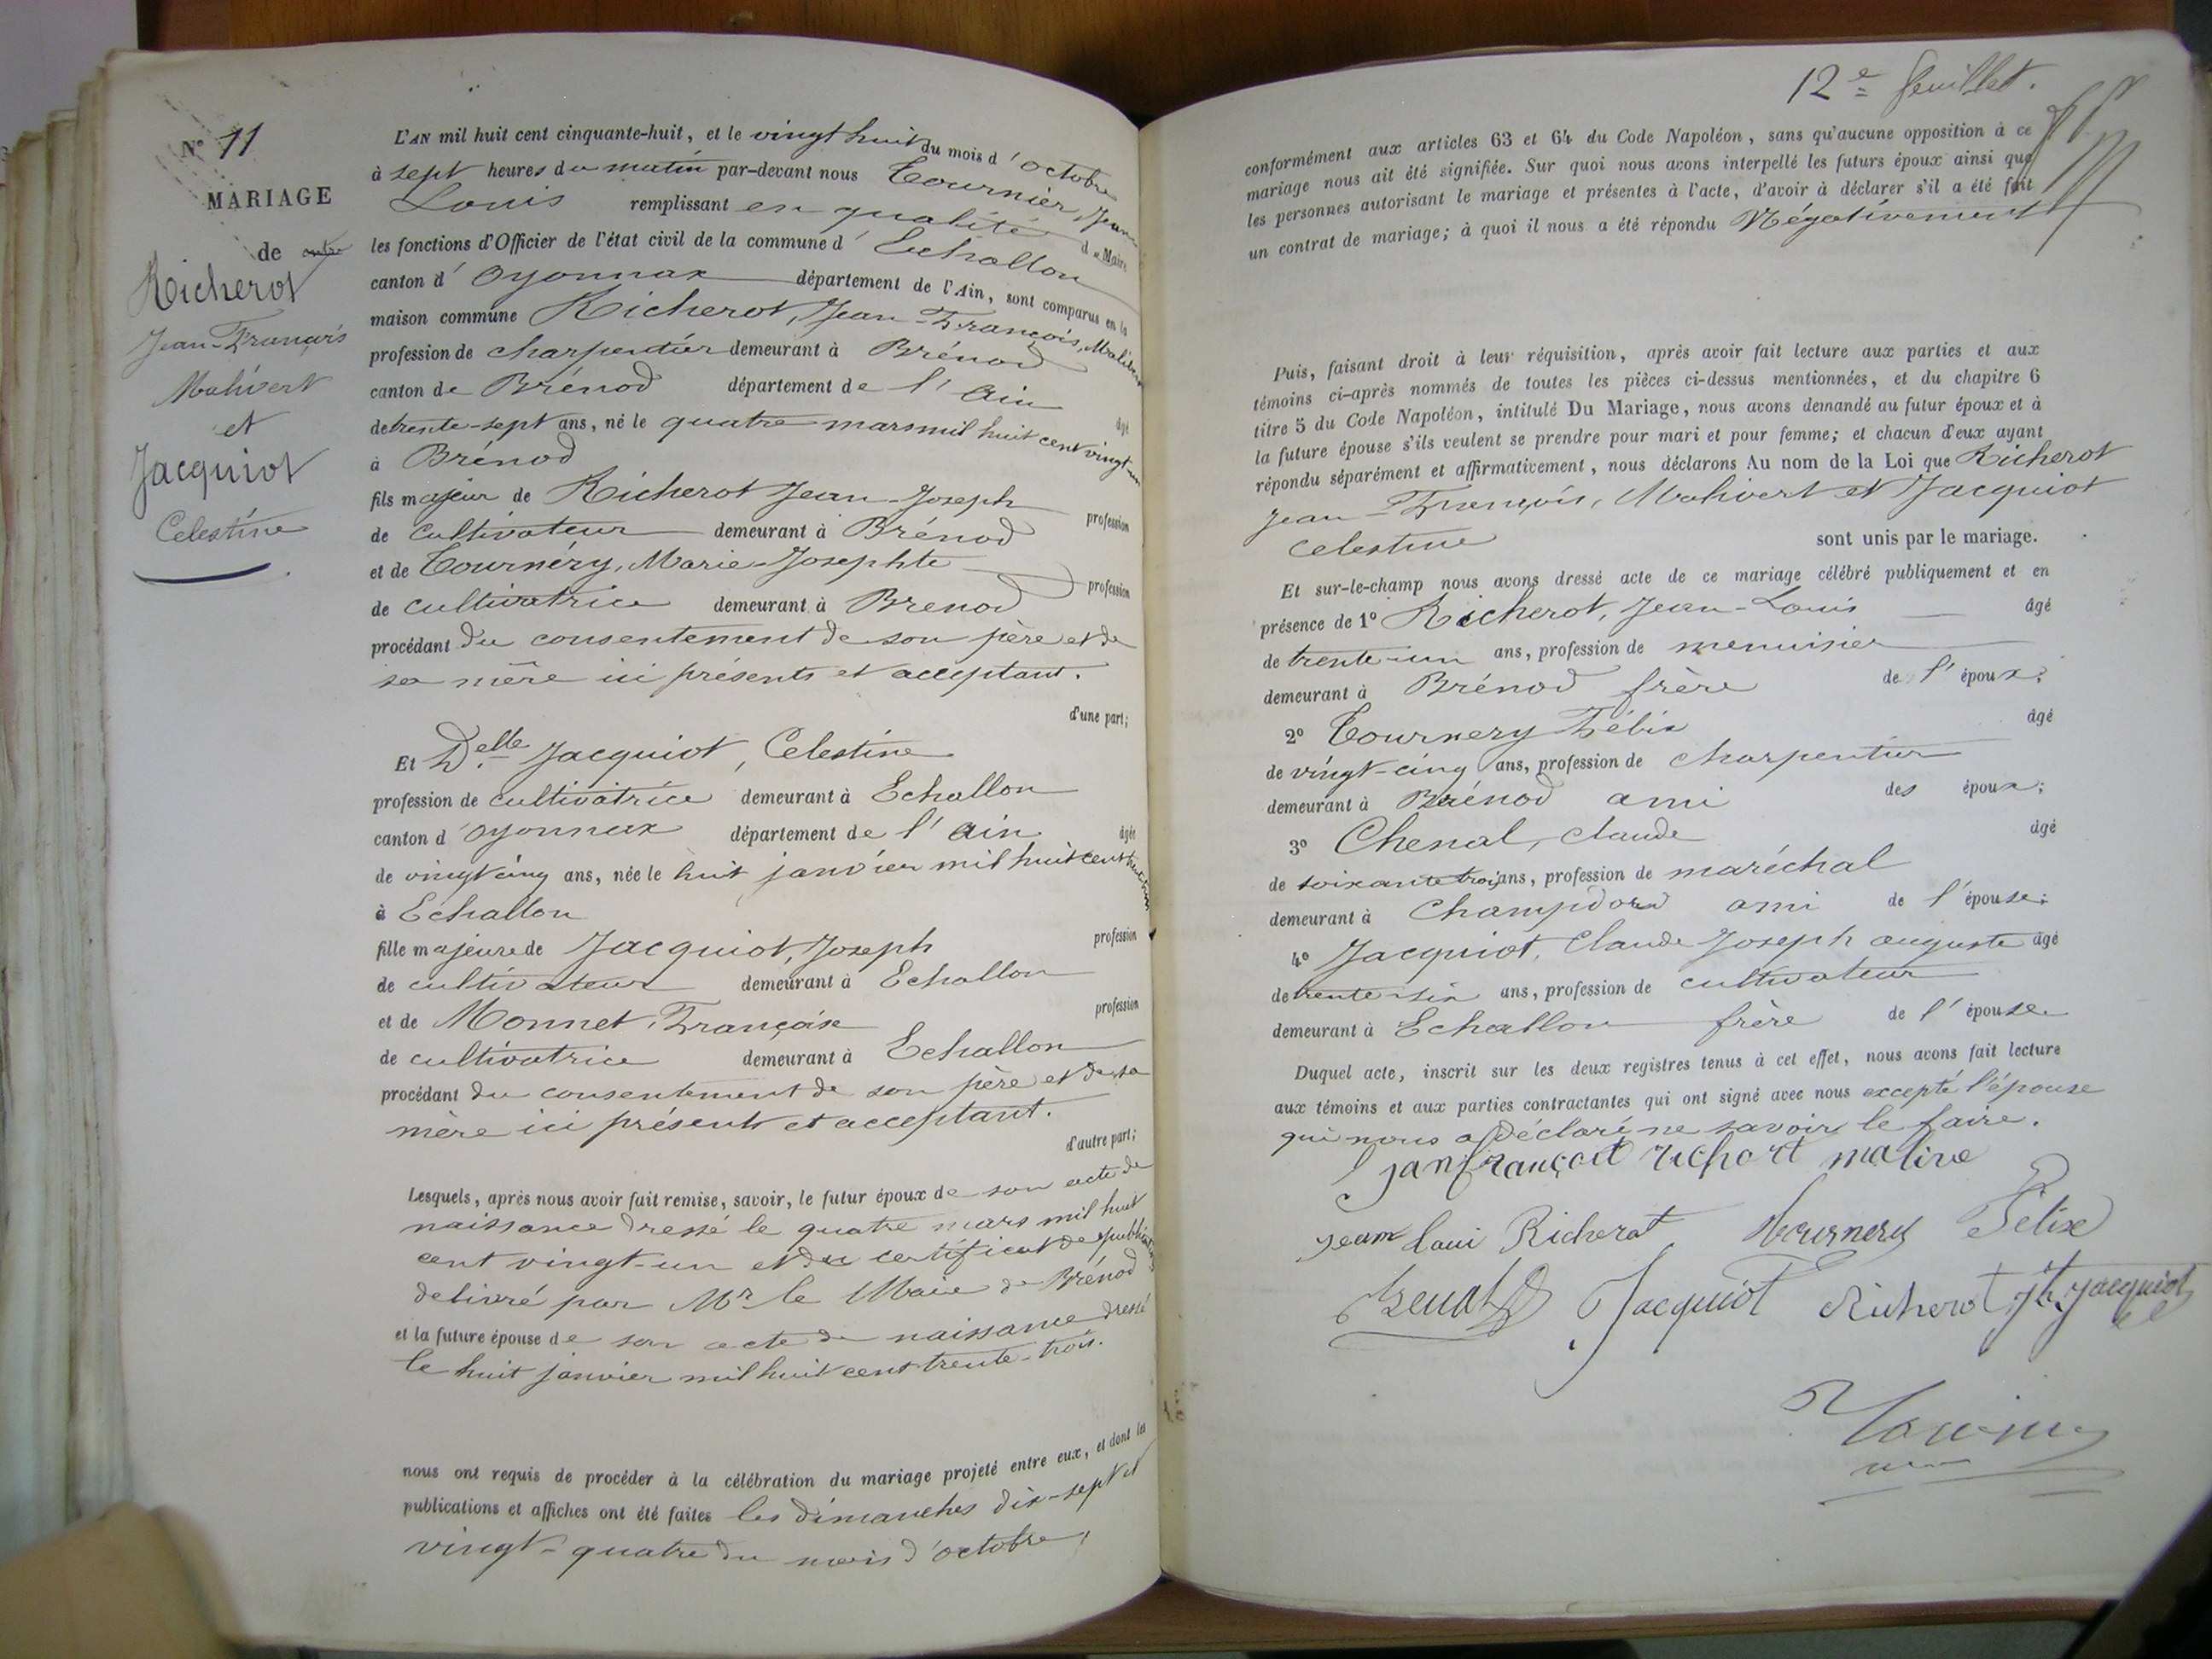 N° 11
MARIAGE
de
Richerot
Jean-François
Malivert
et
Jacquiot
Celestine
L'AN mil huit cent cinquante-huit, et le vingt huit du mois d'octobre
à sept heures du matin par-devant nous Tournier, Jean
Louis remplissant en qualité de Maire
les fonctions d'Officier de l'état civil de la commune d'Echallon
canton d'Oyonnax département de l'Ain, sont comparus en la
maison commune Richerot, Jean-François, Malivert
profession de charpentier demeurant à Brénod
canton de Brénod département de l'Ain âgé
de trente-sept ans, né le quatre mars mil huit cent vingt-un
à Brénod
fils majeur de Richerot Jean-Joseph profession
de cultivateur demeurant à Brénod
et de Tournéry, Marie-Josephte profession
de cultivatrice demeurant à Brenod
procédant du consentement de son père et de
sa mère ici présents et acceptant.
d'une part;
Et Delle Jacquiot, Celestine
profession de cultivatrice demeurant à Echallon
canton d'Oyonnax département de l'Ain âgée
de vingt cinq ans, née le huit janvier mil huit cent trente trois
à Echallon
fille majeure de Jacquiot, Joseph profession
de cultivateur demeurant à Echallon
et de Monnet, Françoise profession
de cultivatrice demeurant à Echallon
procédant du consentement de son père et de sa
mère ici présents et acceptant.
d'autre part;
Lesquels, après nous avoir fait remise, savoir, le futur époux de son acte de
naissance dressé le quatre mars mil huit
cent vingt-un et du certificat de publication
délivré par Mr le Maire de Brénod
et la future épouse de son acte de naissance dressé
le huit janvier mil huit cent trente-trois.
nous ont requis de procéder à la célébration du mariage projeté entre eux, et dont les
publications et affiches ont été faites les dimanches dix-sept et
vingt-quatre du mois d'octobre,
12e feuillet.
conformément aux articles 63 et 64 du Code Napoléon, sans qu'aucune opposition à ce
mariage nous ait été signifiée. Sur quoi nous avons interpellé les futurs époux ainsi que
les personnes autorisant le mariage et présentes à l'acte, d'avoir à déclarer s'il a été fait
un contrat de mariage; à quoi il nous a été répondu Négativement
Puis, faisant droit à leur réquisition, après avoir fait lecture aux parties et aux
témoins ci-après nommés de toutes les pièces ci-dessus mentionnées, et du chapitre 6
titre 5 du Code Napoléon, intitulé Du Mariage, nous avons demandé au futur époux et à
la future épouse s'ils veulent se prendre pour mari et pour femme; et chacun d'eux ayant
répondu séparément et affirmativement, nous déclarons Au nom de la Loi que Richerot
Jean-François, Malivert et Jacquiot
Celestine sont unis par le mariage.
Et sur-le-champ nous avons dressé acte de ce mariage célébré publiquement et en
présence de 1° Richerot, Jean-Louis âgé
de trente-un ans, profession de menuisier
demeurant à Brénod frère de l'époux;
2° Tournery Félix âgé
de vingt-cinq ans, profession de charpentier
demeurant à Brénod ami des époux;
3° Chenal, Claude âgé
de soixante trois ans, profession de maréchal
demeurant à Champdord ami de l'épouse;
4° Jacquiot, Claude Joseph auguste âgé
de trente-six ans, profession de cultivateur
demeurant à Echallon frère de l'épouse
Duquel acte, inscrit sur les deux registres tenus à cet effet, nous avons fait lecture
aux témoins et aux parties contractantes qui ont signé avec nous excepté l'épouse
qui nous a déclaré ne savoir le faire.
Jean Loui Richerot Tournery Félix
Jacquiot Richerot Jh Jacquiot